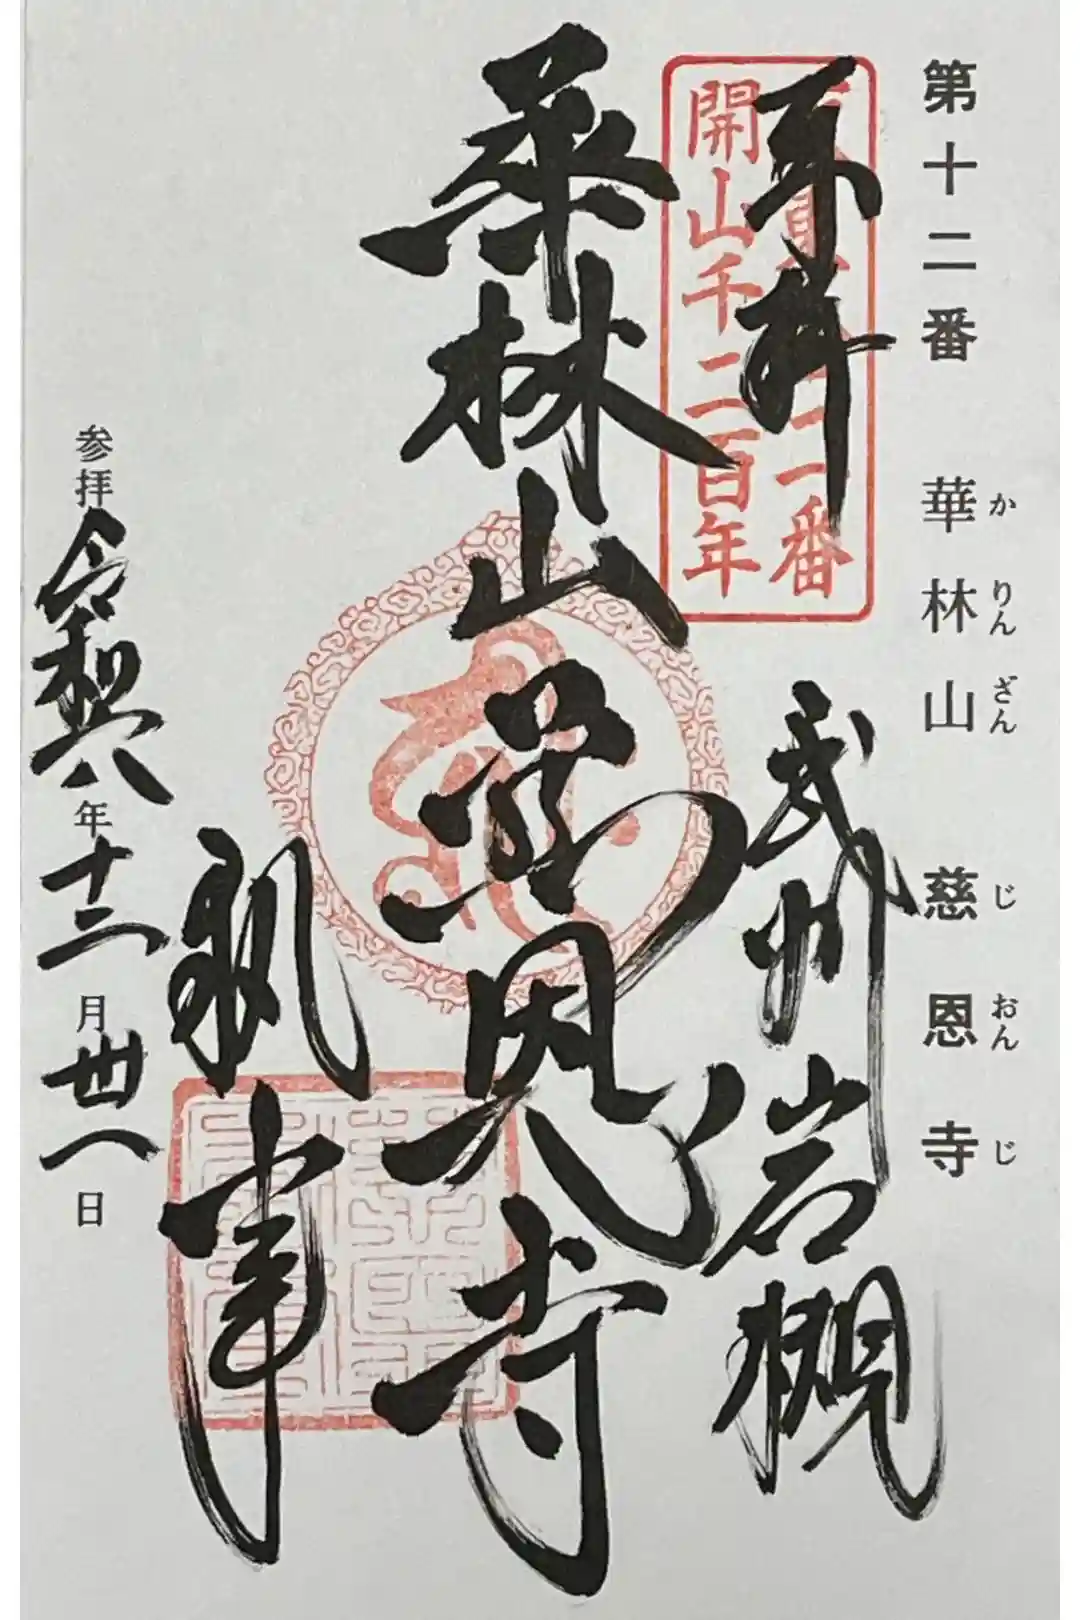 第十二番 華林山 慈恩寺
か りん ざん じ おん じ
奉拝
番
開山千二百年
武州岩槻
華林山慈恩寺
執事
参拝令和六年十二月廿八日